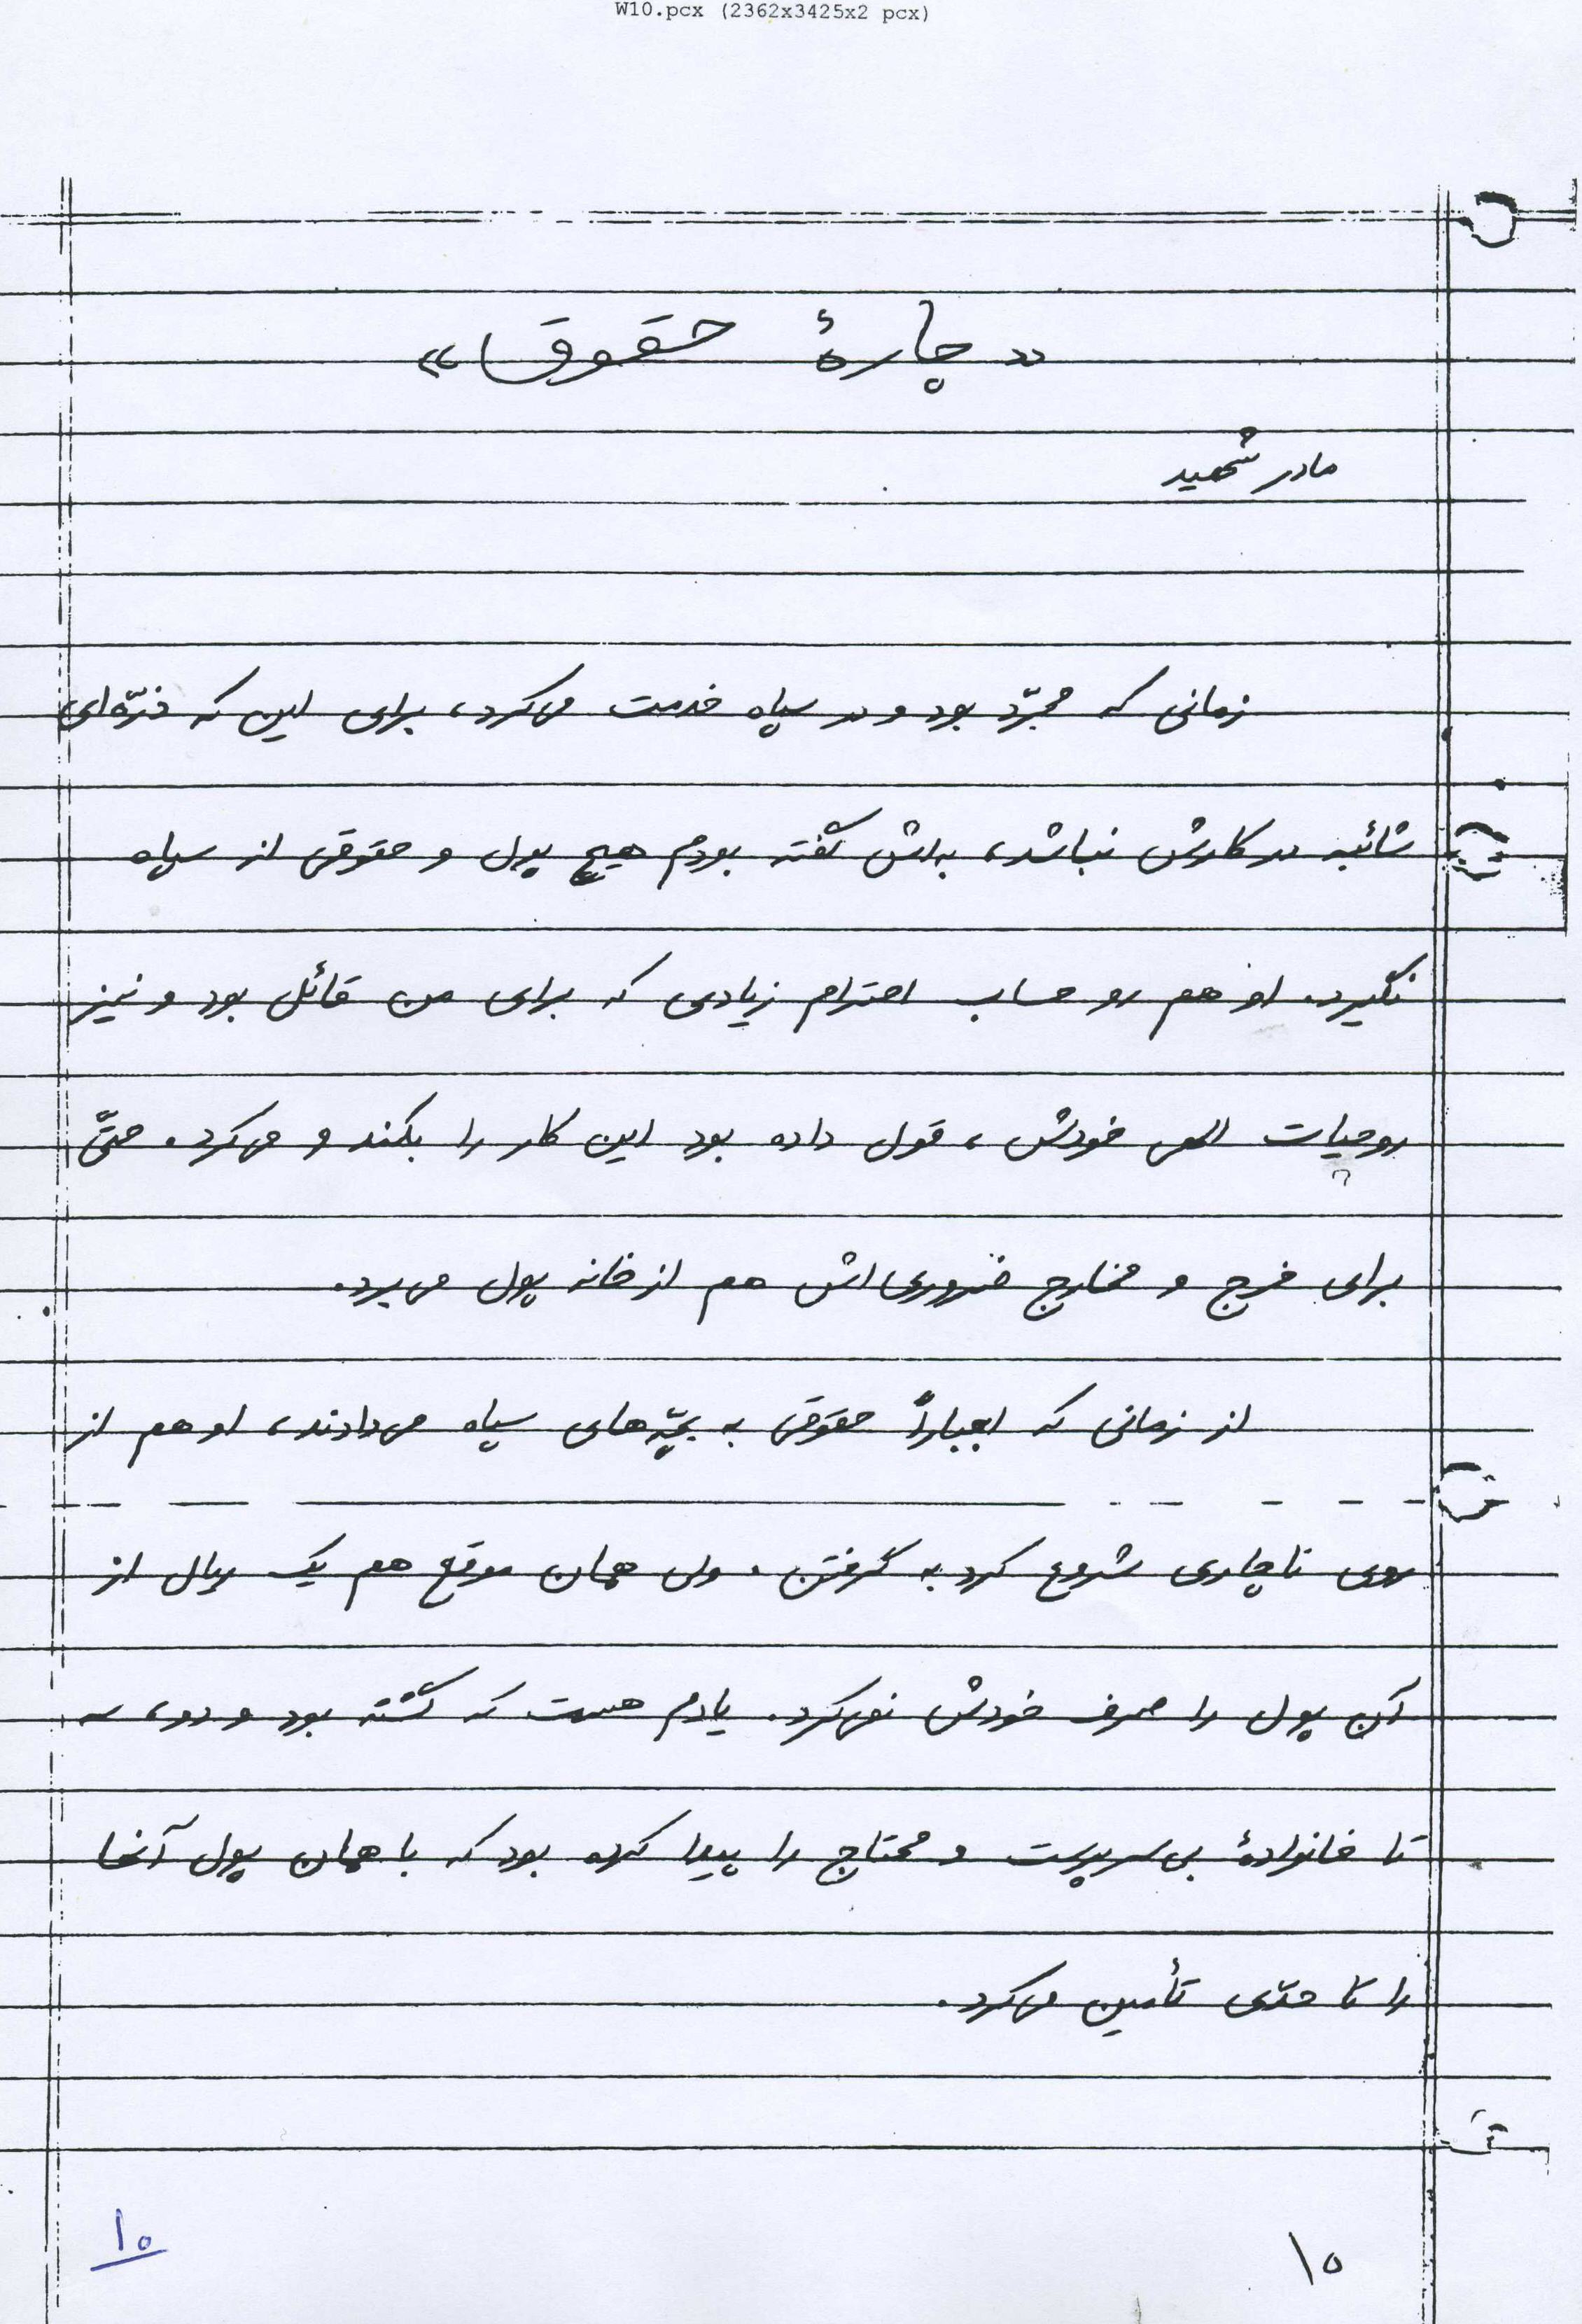 W10.pcx (2362x3425x2 pcx)
«چارهٔ حقوق»
مادر شهید
زمانی که مجرّد بود و در سپاه خدمت می‌کرد، برای این که ذرّه‌ای
شائبه در کارش نباشد، به‌اش گفته بودم هیچ پول و حقوقی از سپاه
نگیرد. او هم رو حساب احترام زیادی که برای من قائل بود و نیز
روحیات الهی خودش، قول داده بود این کار را بکند و می‌کرد. حتّی
برای خرج و مخارج ضروری‌اش هم از خانه پول می‌برد.
از زمانی که اجباراً حقوقی به بچّه‌های سپاه می‌دادند، او هم از
روی ناچاری شروع کرد به گرفتن. ولی همان موقع هم یک ریال از
آن پول را صرف خودش نمی‌کرد. یادم هست که گشته بود و دو، سه
تا خانوادهٔ بی‌سرپرست و محتاج را پیدا کرده بود که با همان پول آنها
را تا حدّی تأمین می‌کرد.
۱۰
۱۰